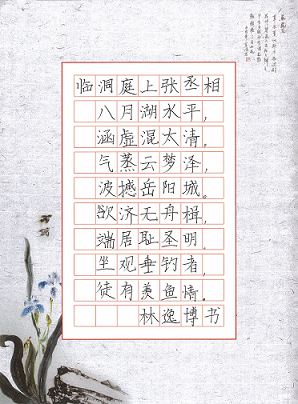 临洞庭上张丞相
八月湖水平，
涵虚混太清。
气蒸云梦泽，
波撼岳阳城。
欲济无舟楫，
端居耻圣明。
坐观垂钓者，
徒有羡鱼情。
林逸博书